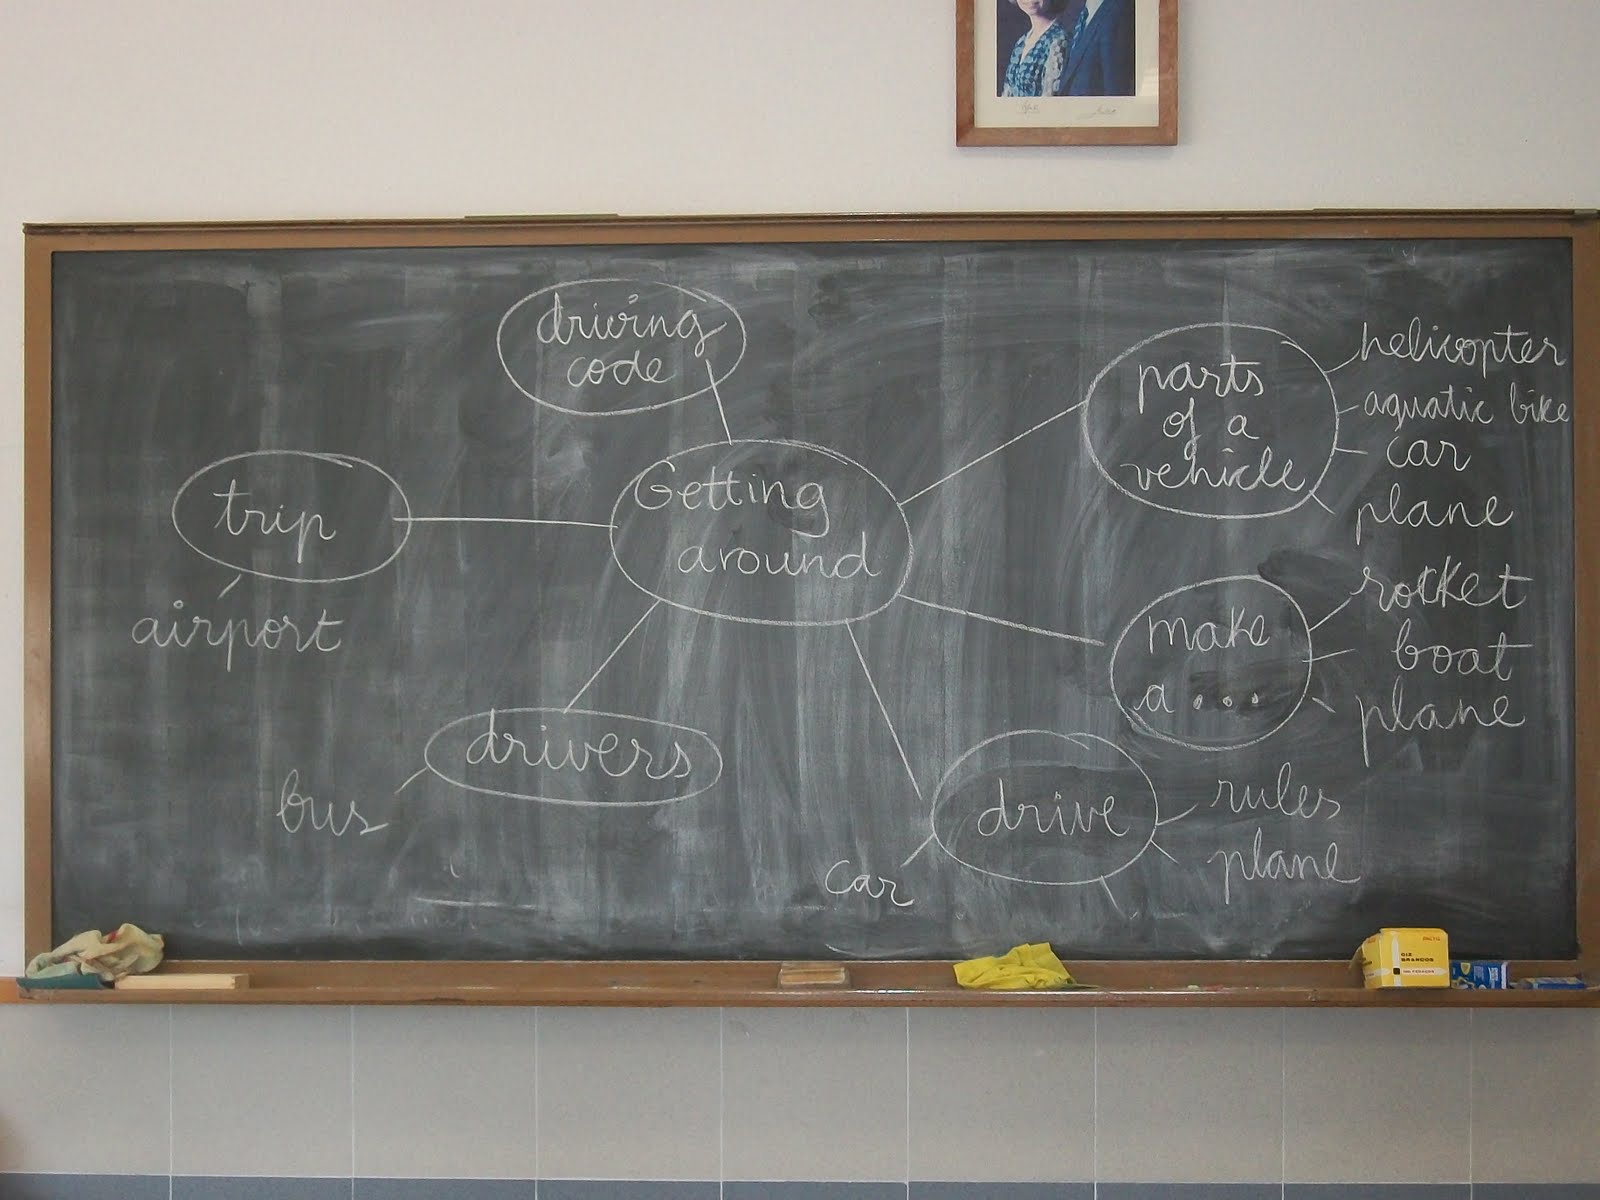 driving
code
trip
airport
Getting
around
drivers
bus
parts
of a
vehicle
helicopter
aquatic bike
car
plane
make
a ...
rocket
boat
plane
drive
car
rules
plane
GIZ
BRANCOS